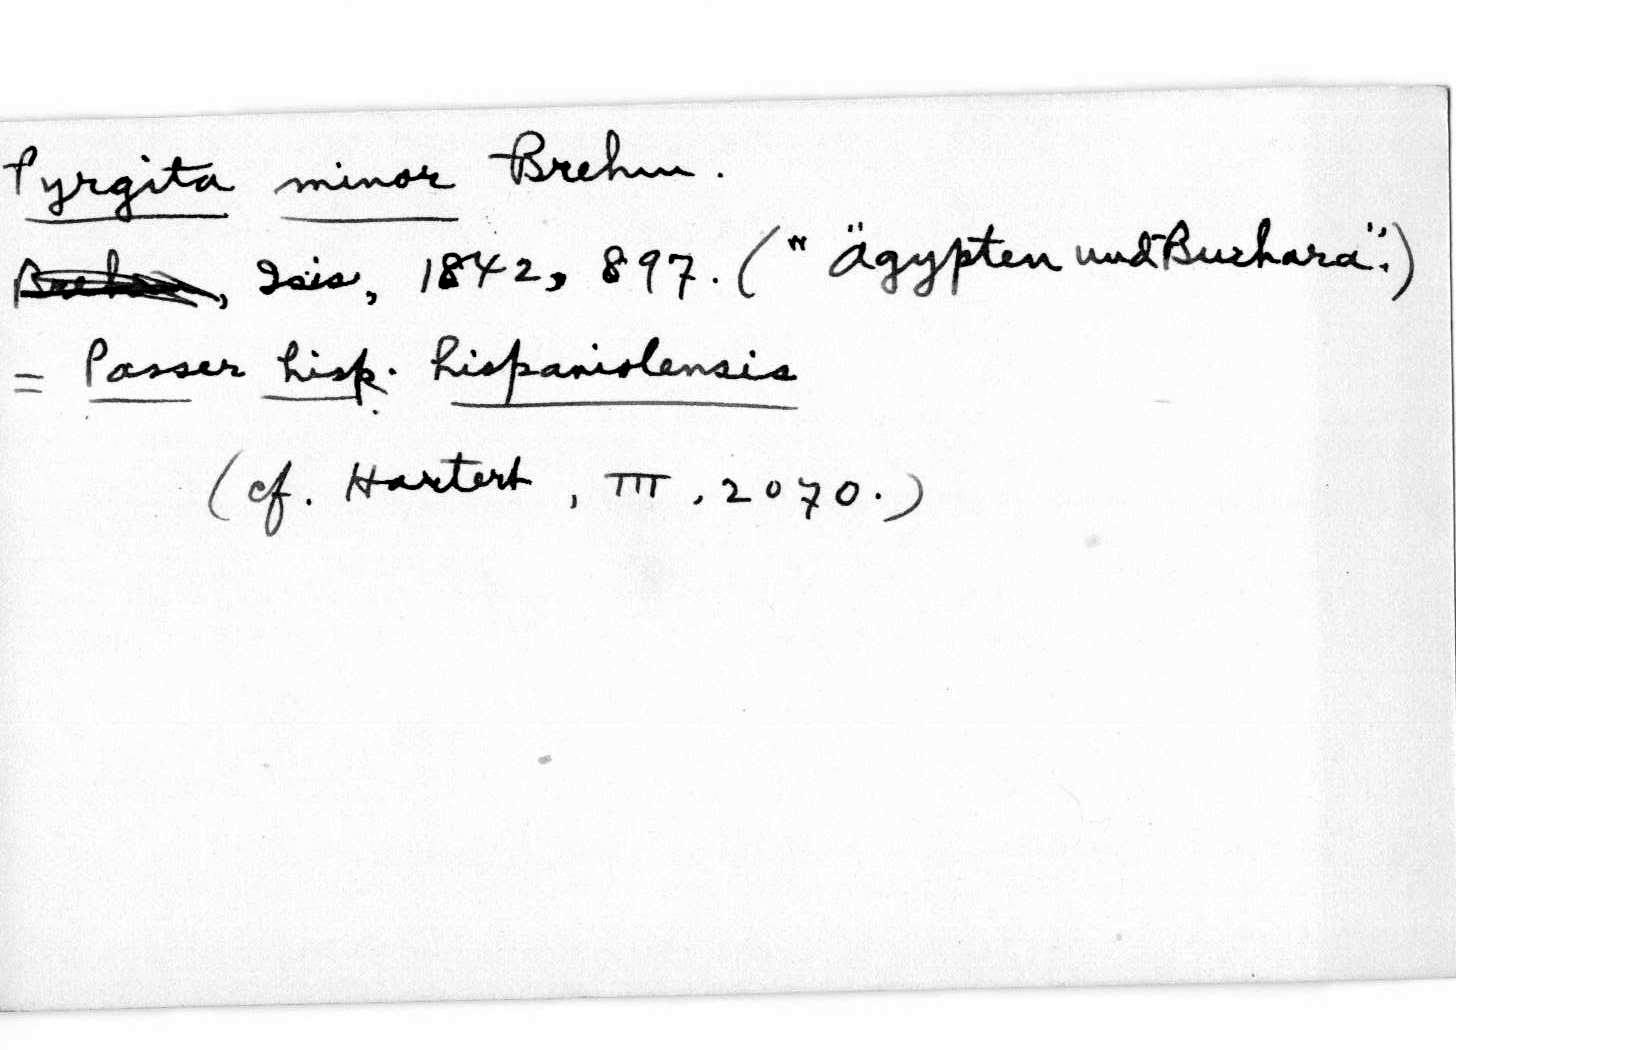 Pyrgita minor Brehm.
, Isis, 1842, 897. ("Ägypten und Buchara".)
= Passer hisp. hispaniolensis
(cf. Hartert, III, 2070.)